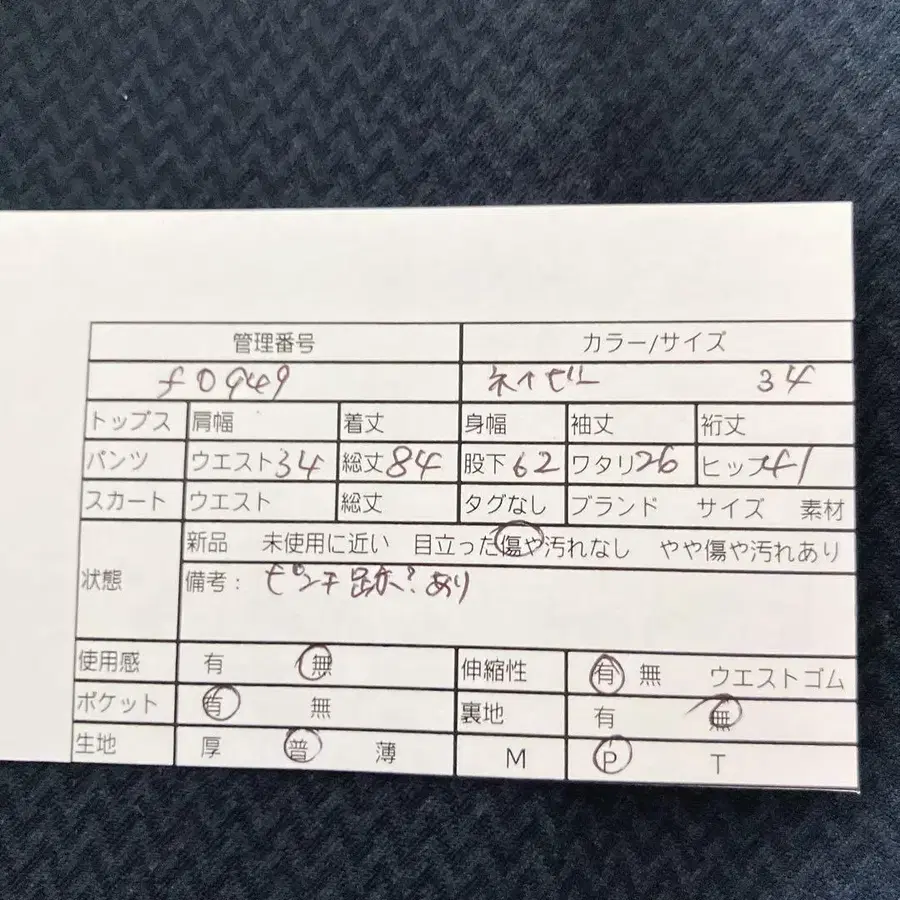 管理番号 カラー/サイズ
f0949 ネイビー 34
トップス 肩幅 着丈 身幅 袖丈 裄丈
パンツ ウエスト34 総丈84 股下62 ワタリ26 ヒップ41
スカート ウエスト 総丈 タグなし ブランド サイズ 素材
状態 新品 未使用に近い 目立った傷や汚れなし やや傷や汚れあり
備考: ピンチ跡?あり
使用感 有 無 伸縮性 有 無 ウエストゴム
ポケット 有 無 裏地 有 無
生地 厚 普 薄 M P T